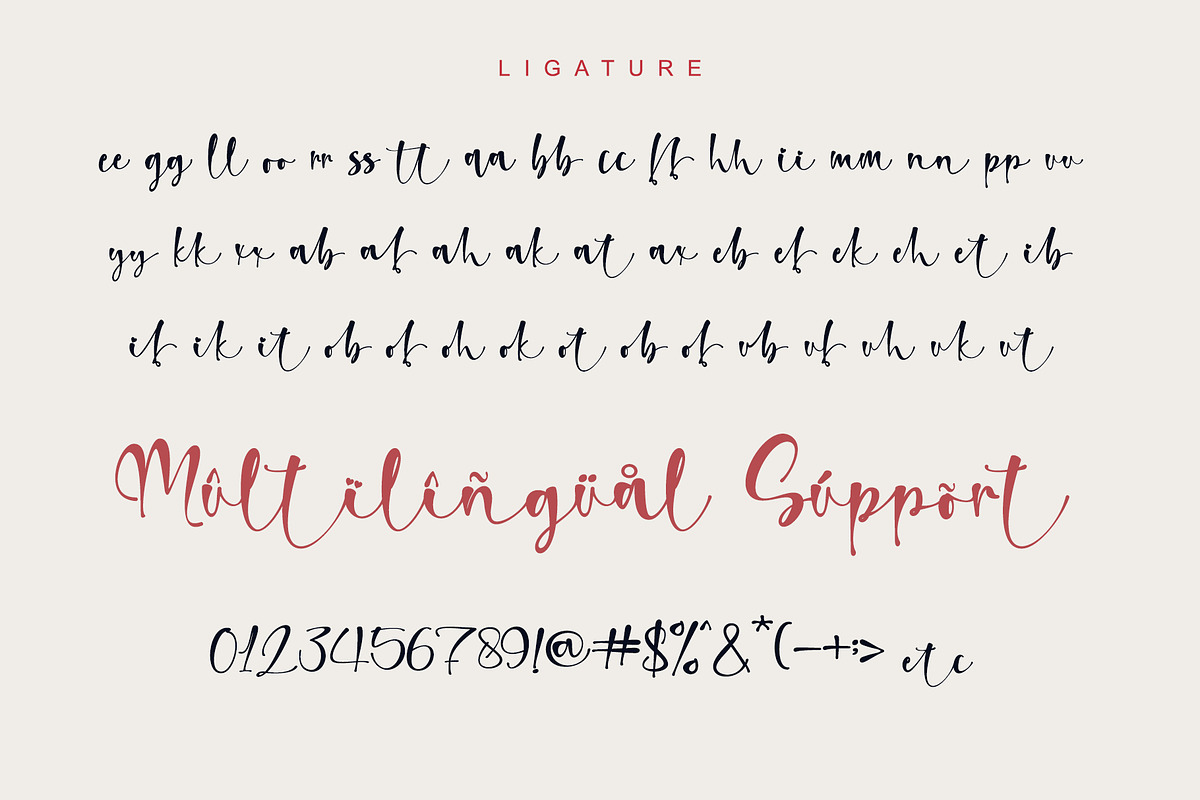 LIGATURE
ee gg ll oo rr ss tt aa bb cc ff hh ii mm nn pp vv
yy kk xx ab af ah ak at ax eb ef ek eh et ib
if ik it ob of oh ok ot ob of ub uf uh uk ut
Mûltïlîñgüål Súppõrt
0123456789!@#$%^&*(-+;> etc